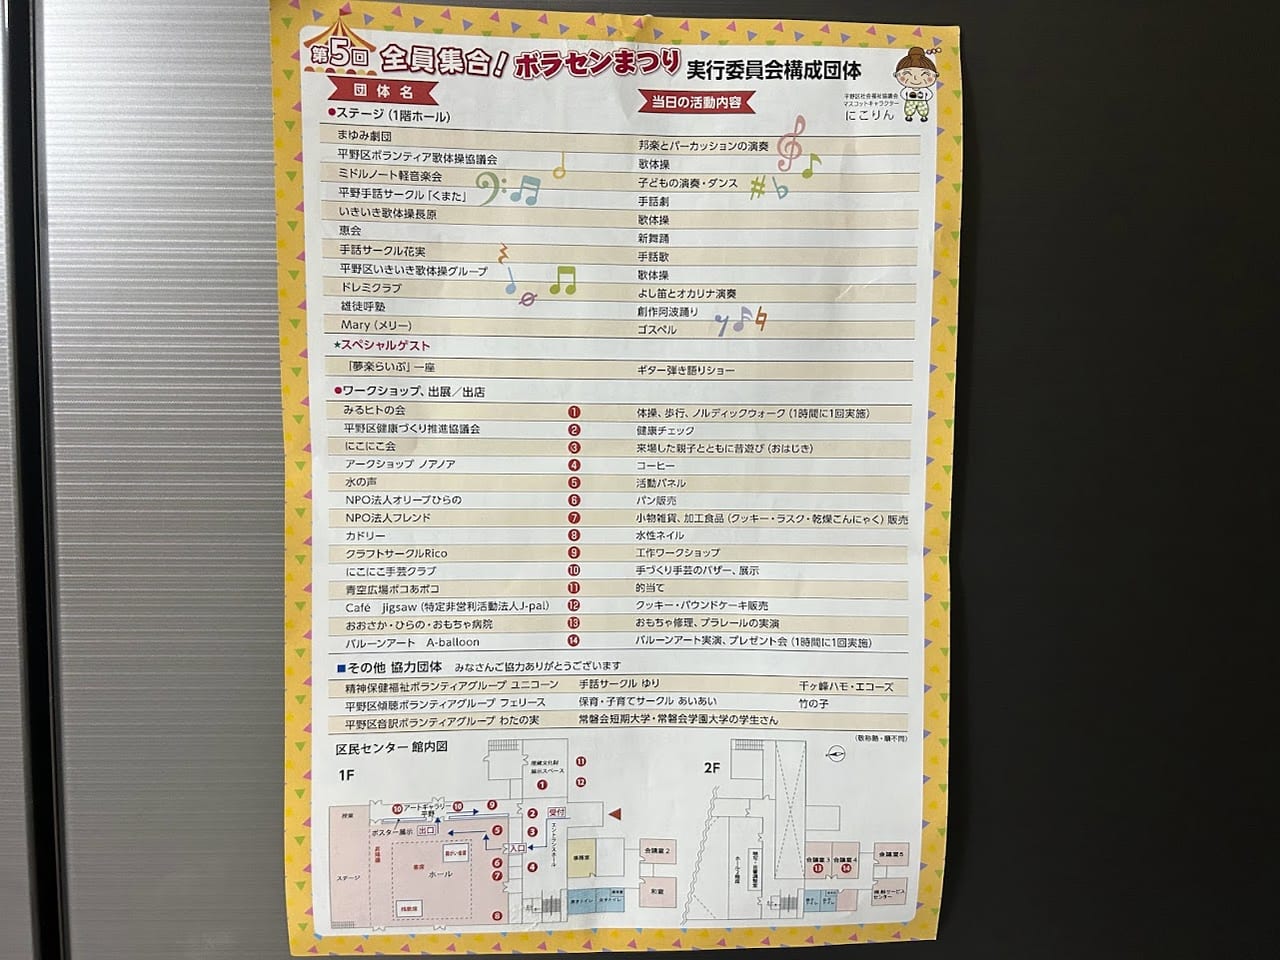 第5回 全員集合！ボラセンまつり 実行委員会構成団体
平野区社会福祉協議会
マスコットキャラクター
にこりん
団体名 当日の活動内容
●ステージ（1階ホール）
まゆみ劇団 邦楽とパーカッションの演奏
平野区ボランティア歌体操協議会 歌体操
ミドルノート軽音楽会 子どもの演奏・ダンス
平野手話サークル「くまた」 手話劇
いきいき歌体操長原 歌体操
恵会 新舞踊
手話サークル花実 手話歌
平野区いきいき歌体操グループ 歌体操
ドレミクラブ よし笛とオカリナ演奏
雄徒呼塾 創作阿波踊り
Mary（メリー） ゴスペル
★スペシャルゲスト
「夢楽らいぶ」一座 ギター弾き語りショー
●ワークショップ、出展／出店
みるヒトの会 1 体操、歩行、ノルディックウォーク（1時間に1回実施）
平野区健康づくり推進協議会 2 健康チェック
にこにこ会 3 来場した親子とともに昔遊び（おはじき）
アークショップ ノアノア 4 コーヒー
水の声 5 活動パネル
NPO法人オリーブひらの 6 パン販売
NPO法人フレンド 7 小物雑貨、加工食品（クッキー・ラスク・乾燥こんにゃく）販売
カドリー 8 水性ネイル
クラフトサークルRico 9 工作ワークショップ
にこにこ手芸クラブ 10 手づくり手芸のバザー、展示
青空広場ポコあポコ 11 的当て
Café jigsaw（特定非営利活動法人J-pal） 12 クッキー・パウンドケーキ販売
おおさか・ひらの・おもちゃ病院 13 おもちゃ修理、プラレールの実演
バルーンアート A-balloon 14 バルーンアート実演、プレゼント会（1時間に1回実施）
■その他 協力団体 みなさんご協力ありがとうございます
精神保健福祉ボランティアグループ ユニコーン 手話サークル ゆり 千ヶ峰ハモ・エコーズ
平野区傾聴ボランティアグループ フェリース 保育・子育てサークル あいあい 竹の子
平野区音訳ボランティアグループ わたの実 常磐会短期大学・常磐会学園大学の学生さん
（敬称略・順不同）
区民センター 館内図
1F
2F
埋蔵文化財
展示スペース
11
1
12
10 アートギャラリー 10 9
平野
2 受付
ポスター展示 出口
5
3
入口
エントランスホール
6
4
7
8
控室
ステージ
客席
ホール
事務室
会議室2
和室
会議室3 会議室4 会議室5
13 14